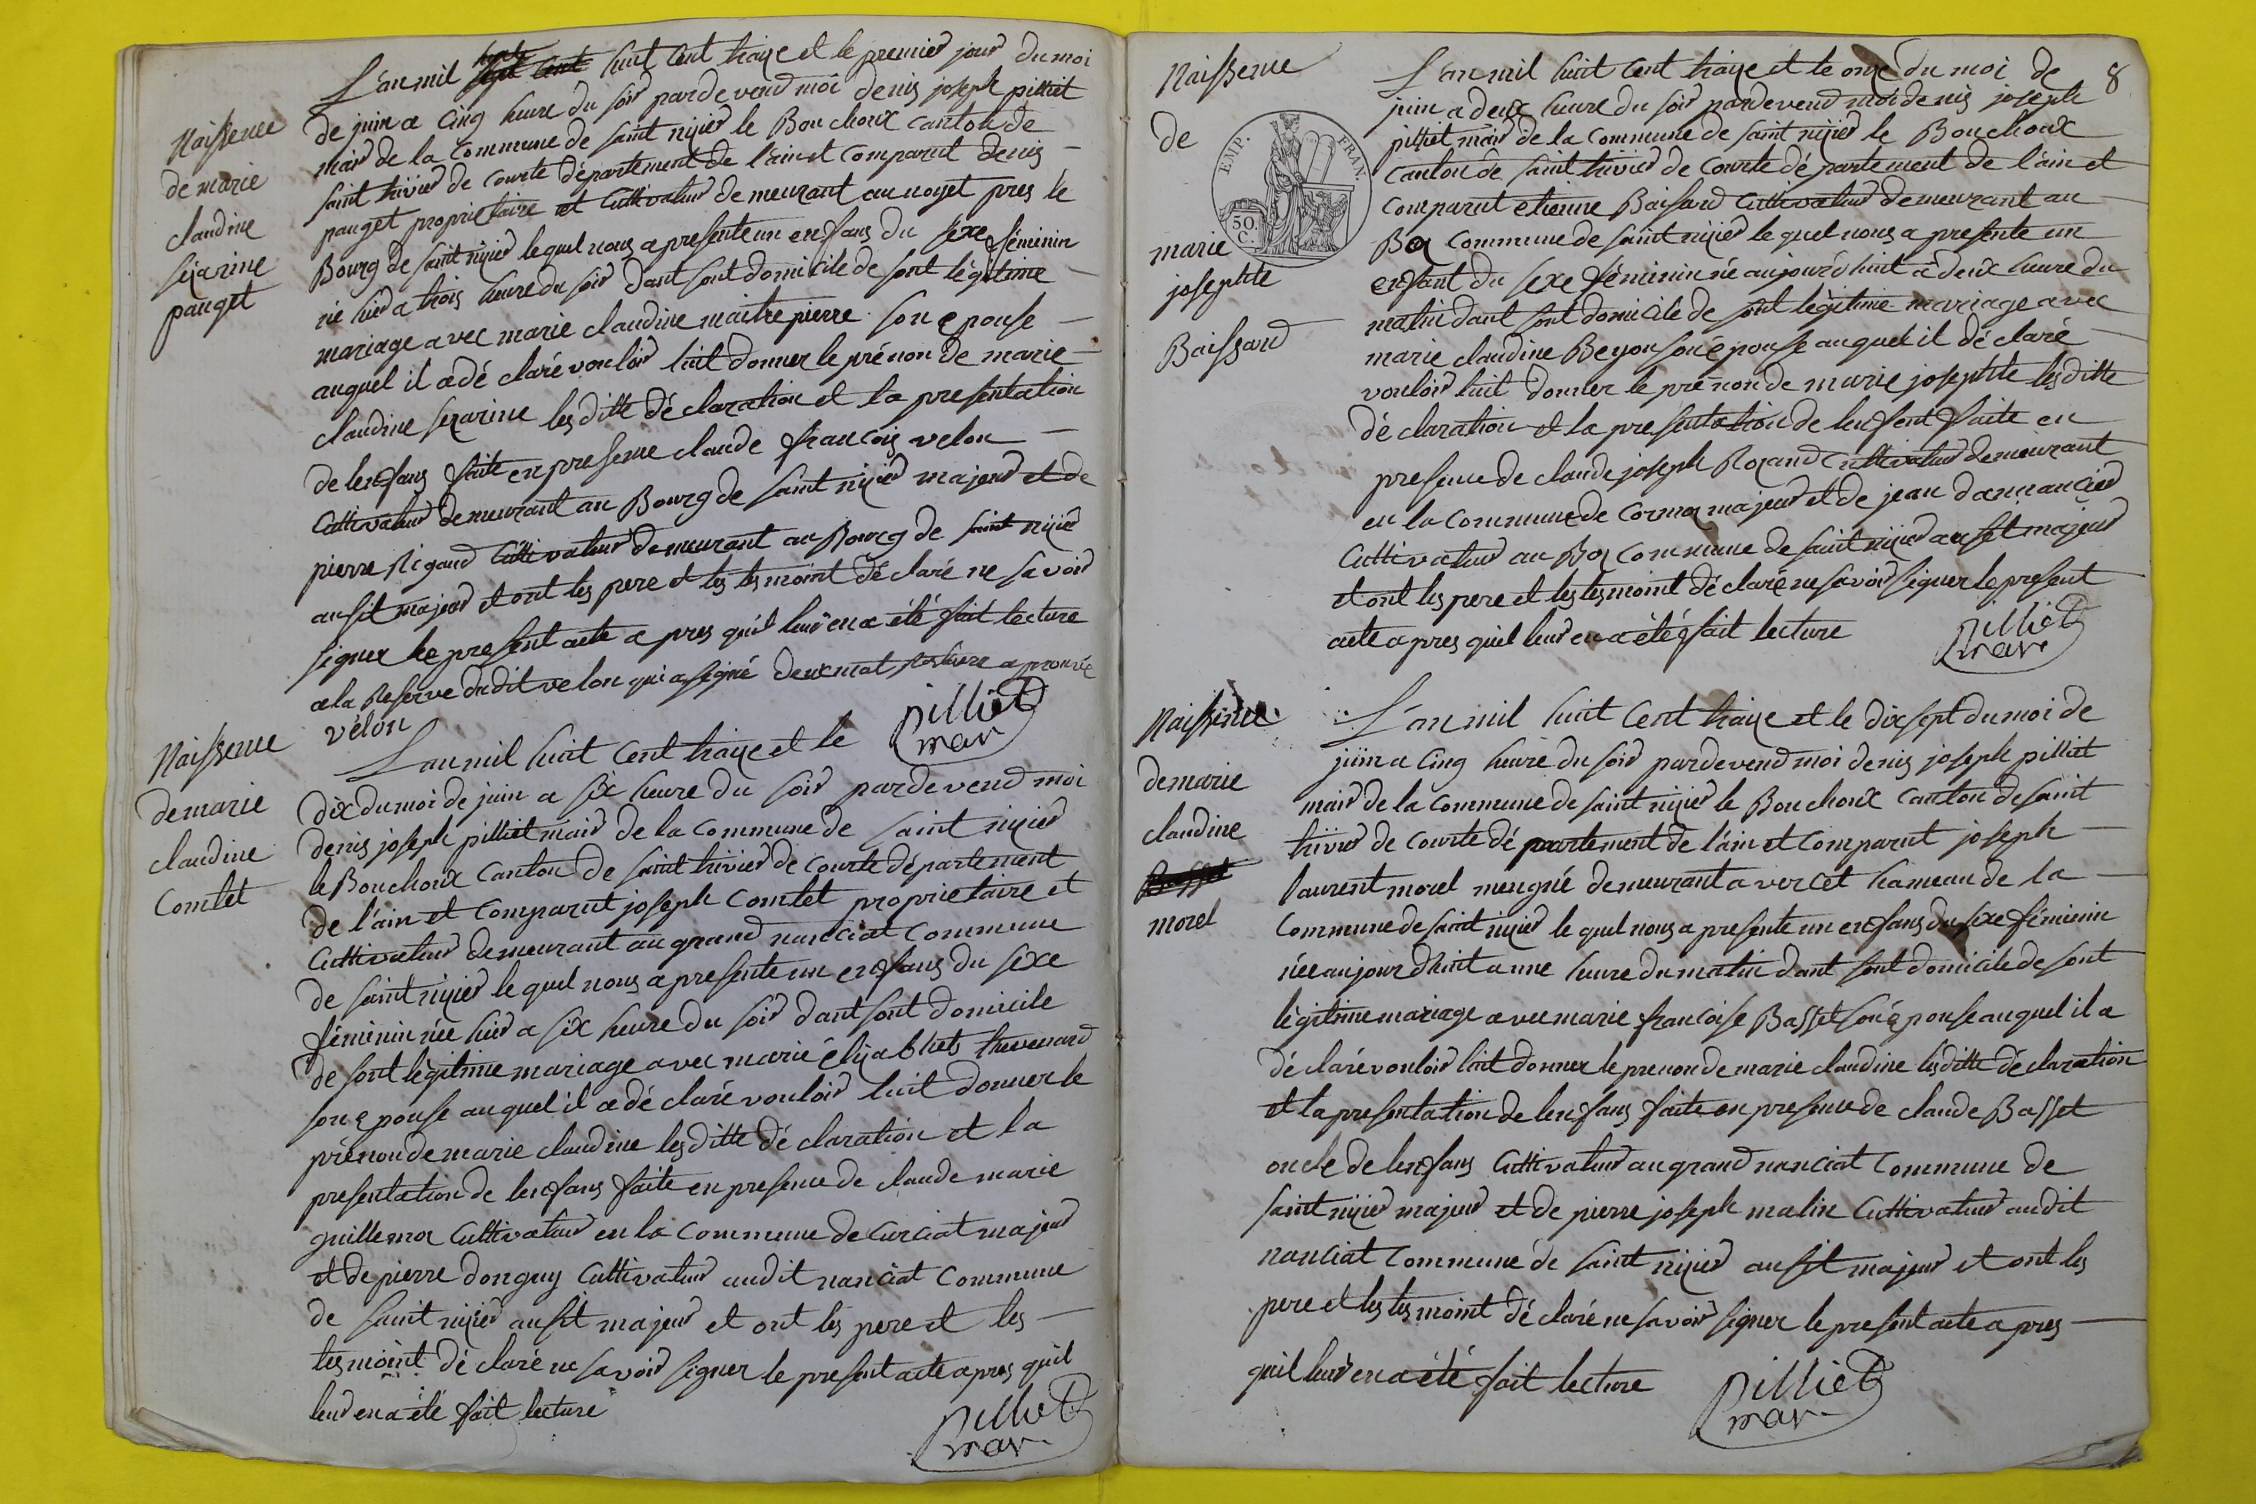 Naissence
de marie
claudine
sézarine
pauget
L'an mil huit cent traize et le premier jour du moi
de juin a cinq heure du soir pardevend moi denis joseph pilliet
mair de la commune de saint nizier le Bouchoux canton de
saint trivier de courte département de l'ain et comparut denis
pauget proprietaire et cultivateur demeurant au noyet pres le
Bourg de saint nizier lequel nous a presente un enfans du sexe féminin
né hier a trois heure du soir dant sont domicile de sont légitime
mariage avec marie claudine maitrepierre son épouse
auquel il a dé claré vouloir luit donner le prénon de marie
claudine sezarine lesditte dé claration et la presentation
de lenfans faite en presense claude françois velon
cultivateur demeurant au Bourg de saint nizier majeur et de
pierre Rigaud cultivateur demeurant au Bourg de saint nizier
ausit majeur et ont les pere et les tesmoint dé claré ne savoir
signer le present acte a pres quil leur en a été fait lecture
a la Reserve dudit velon qui a signé deux mot aprouvée
vélon
pilliet
mair
Naissence
de marie
claudine
Comtet
L'an mil huit cent traize et le
dix du moi de juin a six heure du soir pardevend moi
denis joseph pilliet mair de la commune de saint nizier
le Bouchoux canton de saint trivier de courte département
de l'ain et comparut joseph comtet proprietaire et
cultivateur demeurant au grand nanciat commune
de saint nizier lequel nous a presente un enfans du sexe
féminin née hier a six heure du soir dant sont domicile
de sont légitime mariage avec marie élizabhet thevenard
son épouse auquel il a dé claré vouloir luit donner le
prénon de marie claudine lesditte dé claration et la
presentation de lenfans faite en presence de claude marie
guillemot cultivateur en la commune de curciat majeur
et de pierre donguy cultivateur audit nanciat commune
de saint nizier ausit majeur et ont les pere et les
tesmoint dé claré ne savoir signer le present acte apres quil
leur en a été fait lecture
pilliet
mair
8
Naissence
de
marie
josephte
Baissard
EMP. FRAN.
50
C.
L'an mil huit cent traize et le onze du moi de
juin a deux heure du soir pardevend moi denis joseph
pilliet mair de la commune de saint nizier le Bouchoux
canton de saint trivier de courte département de l'ain et
comparut etienne Baissard cultivateur demeurant au
commune de saint nizier lequel nous a presente un
enfant du sexe féminin né aujourd huit a deux heure du
matin dant sont domicile de sont légitime mariage avec
marie claudine Beyon son épouse auquel il dé claré
vouloir luit donner le prénon de marie josephte lesditte
dé claration et la presentation de lenfent faite en
presence de claude joseph Rozand cultivateur demeurant
en la commune de cormoz majeur et de jean danancier
cultivateur au commune de saint nizier ausit majeur
et ont les pere et les tesmoint dé claré ne savoir signer le present
acte apres quil leur en a été fait lecture
pilliet
mair
Naissence
de marie
claudine
Basset
morel
L'an mil huit cent traize et le dix sept du moi de
juin a cinq heure du soir pardevend moi denis joseph pilliet
mair de la commune de saint nizier le Bouchoux canton de saint
trivier de courte dé partement de l'ain et comparut joseph
laurent morel meugnié demeurant a vercet hameau de la
commune de saint nizier lequel nous a presente un enfans du sexe féminin
née aujourdhuit a une heure du matin dant sont domicile de sont
légitime mariage avec marie francoise Basset son épouse auquel il a
dé claré vouloir luit donner le prenon de marie claudine lesditte dé claration
et la presentation de lenfans faite en presence de claude Basset
oncle de lenfans cultivateur au grand nanciat commune de
saint nizier majeur et de pierre joseph malin cultivateur audit
nanciat commune de saint nizier ausit majeur et ont les
pere et les tesmoint dé claré ne savoir signer le present acte apres
quil leur en a été fait lecture
pilliet
mair